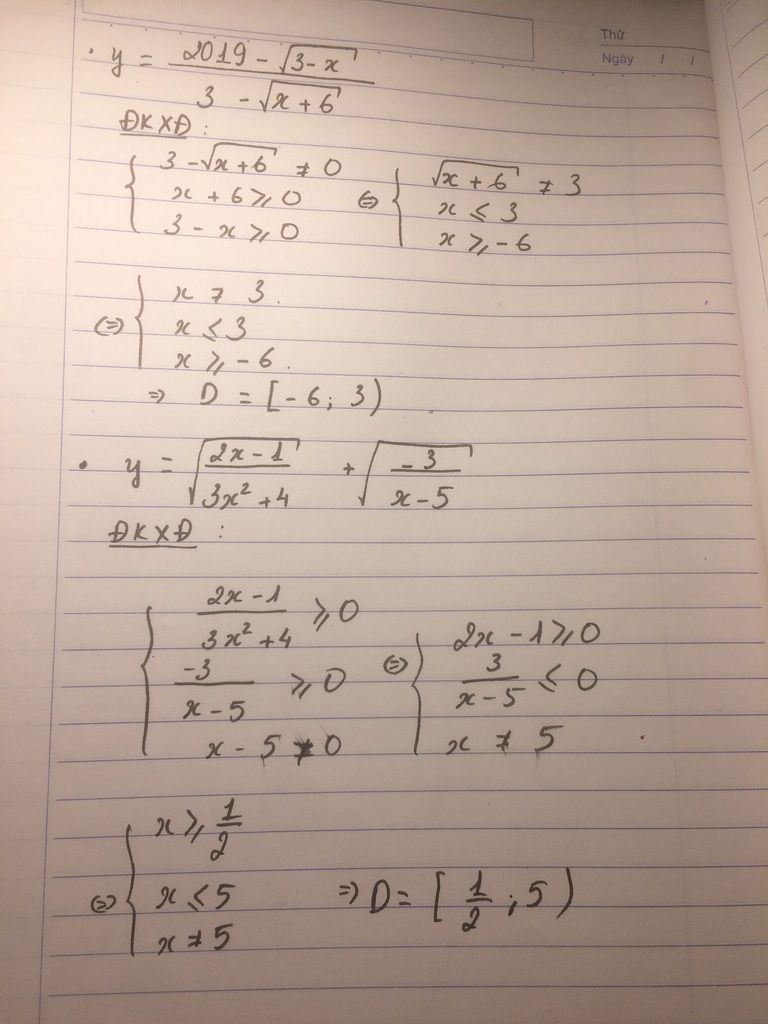 Thứ
Ngày / /
• y = (2019 - √(3-x)) / (3 - √(x+6))
ĐKXĐ :
{ 3 - √(x+6) ≠ 0 ⇔ { √(x+6) ≠ 3
x + 6 ≥ 0 x ≤ 3
3 - x ≥ 0 x ≥ -6
⇔ { x ≠ 3.
x ≤ 3
x ≥ -6.
⇒ D = [-6; 3)
• y = √((2x-1)/(3x²+4)) + √(-3/(x-5))
ĐKXĐ :
{ (2x-1)/(3x²+4) ≥ 0 ⇔ { 2x - 1 ≥ 0
-3/(x-5) ≥ 0 3/(x-5) ≤ 0
x - 5 ≠ 0 x ≠ 5
⇔ { x ≥ 1/2
x ≤ 5 ⇒ D = [1/2; 5)
x ≠ 5